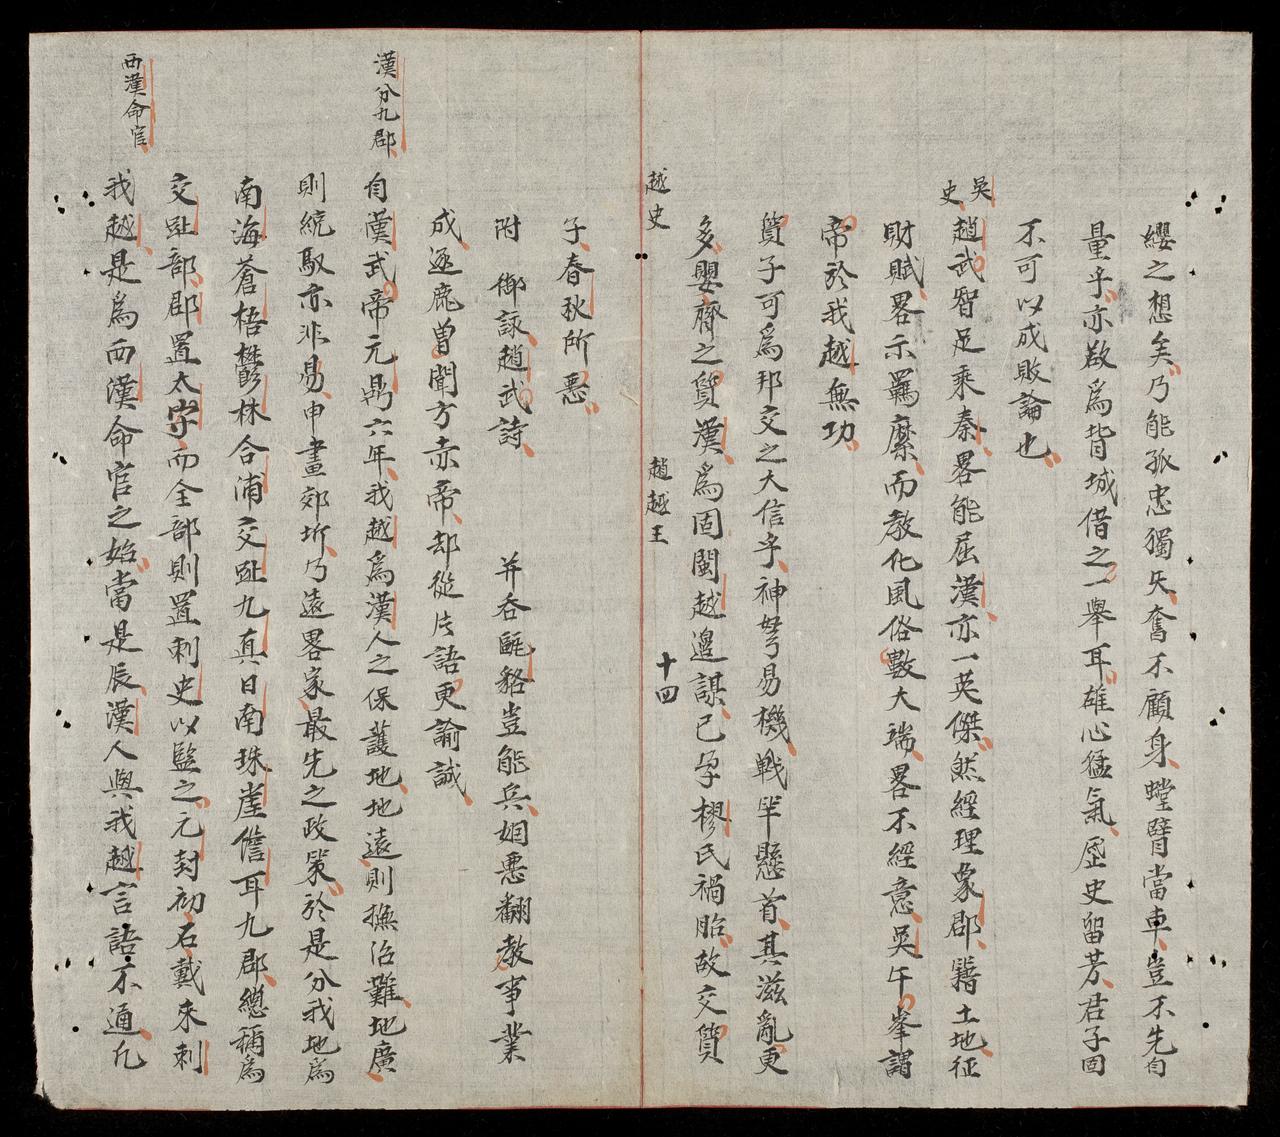 纓之想矣乃能孤忠獨矢奮不顧身螳臂當車豈不先自
量乎亦敢爲背城借之一舉耳雄心猛氣歷史留芳君子固
不可以成敗論也
吳史
趙武智足乘秦畧能屈漢亦一英傑然經理象郡籍土地征
財賦畧示羈縻而教化風俗數大端畧不經意吳午峯謂
帝於我越無功
質子可爲邦交之大信乎神弩易機戰半懸首其滋亂更
多嬰齊之質漢爲固閩越邊謀已孕樛氏禍胎故交質
越史 趙越王 十四
子春秋所惡
附 御詠趙武詩 并吞甌貉豈能兵姻惡翻教事業
成逐鹿曾聞方赤帝却從片語更諭誠
漢分九郡
自漢武帝元鼎六年我越爲漢人之保護地地遠則撫治難地廣
則統馭亦非易申畫郊圻乃遠畧家最先之政策於是分我地爲
南海蒼梧鬱林合浦交趾九真日南珠崖儋耳九郡總稱爲
交趾部郡置太守而全部則置刺史以監之元封初石戴來刺
西漢命官
我越是爲西漢命官之始當是辰漢人與我越言語不通凡